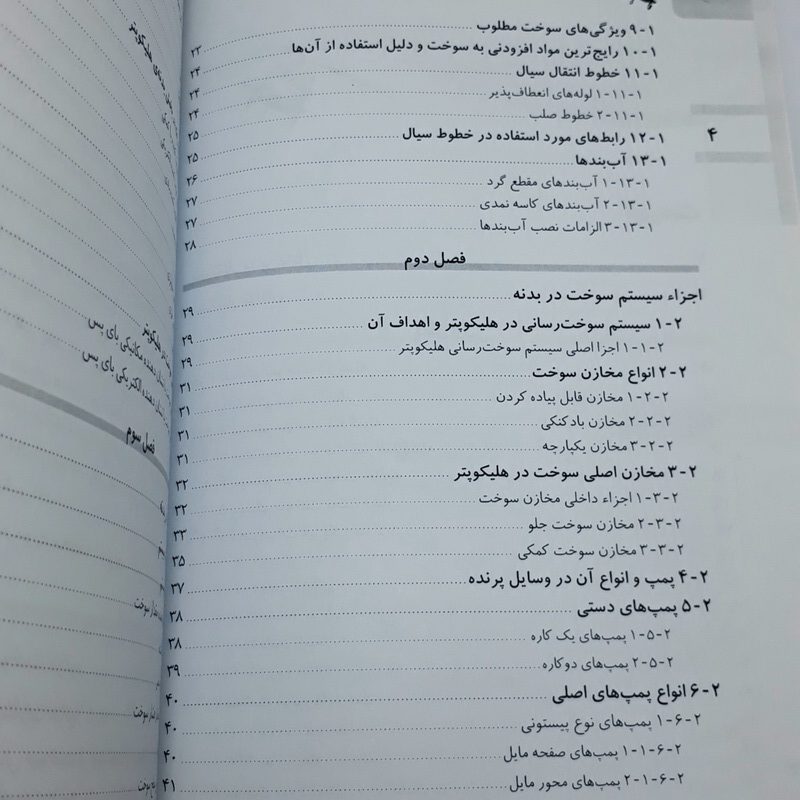 ۹-۱ ویژگی‌های سوخت مطلوب
۱۰-۱ رایج‌ترین مواد افزودنی به سوخت و دلیل استفاده از آن‌ها ۲۳
۱۱-۱ خطوط انتقال سیال ۲۴
۱-۱۱-۱ لوله‌های انعطاف‌پذیر ۲۴
۲-۱۱-۱ خطوط صلب ۲۴
۱۲-۱ رابط‌های مورد استفاده در خطوط سیال ۲۵
۴
۱۳-۱ آب‌بندها ۲۵
۱-۱۳-۱ آب‌بندهای مقطع گرد ۲۶
۲-۱۳-۱ آب‌بندهای کاسه نمدی ۲۷
۳-۱۳-۱ الزامات نصب آب‌بندها ۲۷
۲۸
فصل دوم
اجزاء سیستم سوخت در بدنه ۲۹
۱-۲ سیستم سوخت‌رسانی در هلیکوپتر و اهداف آن ۲۹
۱-۱-۲ اجزا اصلی سیستم سوخت‌رسانی هلیکوپتر ۲۹
۲-۲ انواع مخازن سوخت ۳۱
۱-۲-۲ مخازن قابل پیاده کردن ۳۱
۲-۲-۲ مخازن بادکنکی ۳۱
۳-۲-۲ مخازن یکپارچه ۳۱
۳-۲ مخازن اصلی سوخت در هلیکوپتر ۳۲
۱-۳-۲ اجزاء داخلی مخازن سوخت ۳۲
۲-۳-۲ مخازن سوخت جلو ۳۳
۳-۳-۲ مخازن سوخت کمکی ۳۵
۴-۲ پمپ و انواع آن در وسایل پرنده ۳۷
۵-۲ پمپ‌های دستی ۳۸
۱-۵-۲ پمپ‌های یک کاره ۳۸
۲-۵-۲ پمپ‌های دوکاره ۳۹
۶-۲ انواع پمپ‌های اصلی ۴۰
۱-۶-۲ پمپ‌های نوع پیستونی ۴۰
۱-۱-۶-۲ پمپ‌های صفحه مایل ۴۰
۲-۱-۶-۲ پمپ‌های محور مایل ۴۱
هلیکوپتر
دهنده مکانیکی بای پس
دهنده الکتریکی بای پس
فصل سوم
سوخت
سوخت
سوخت